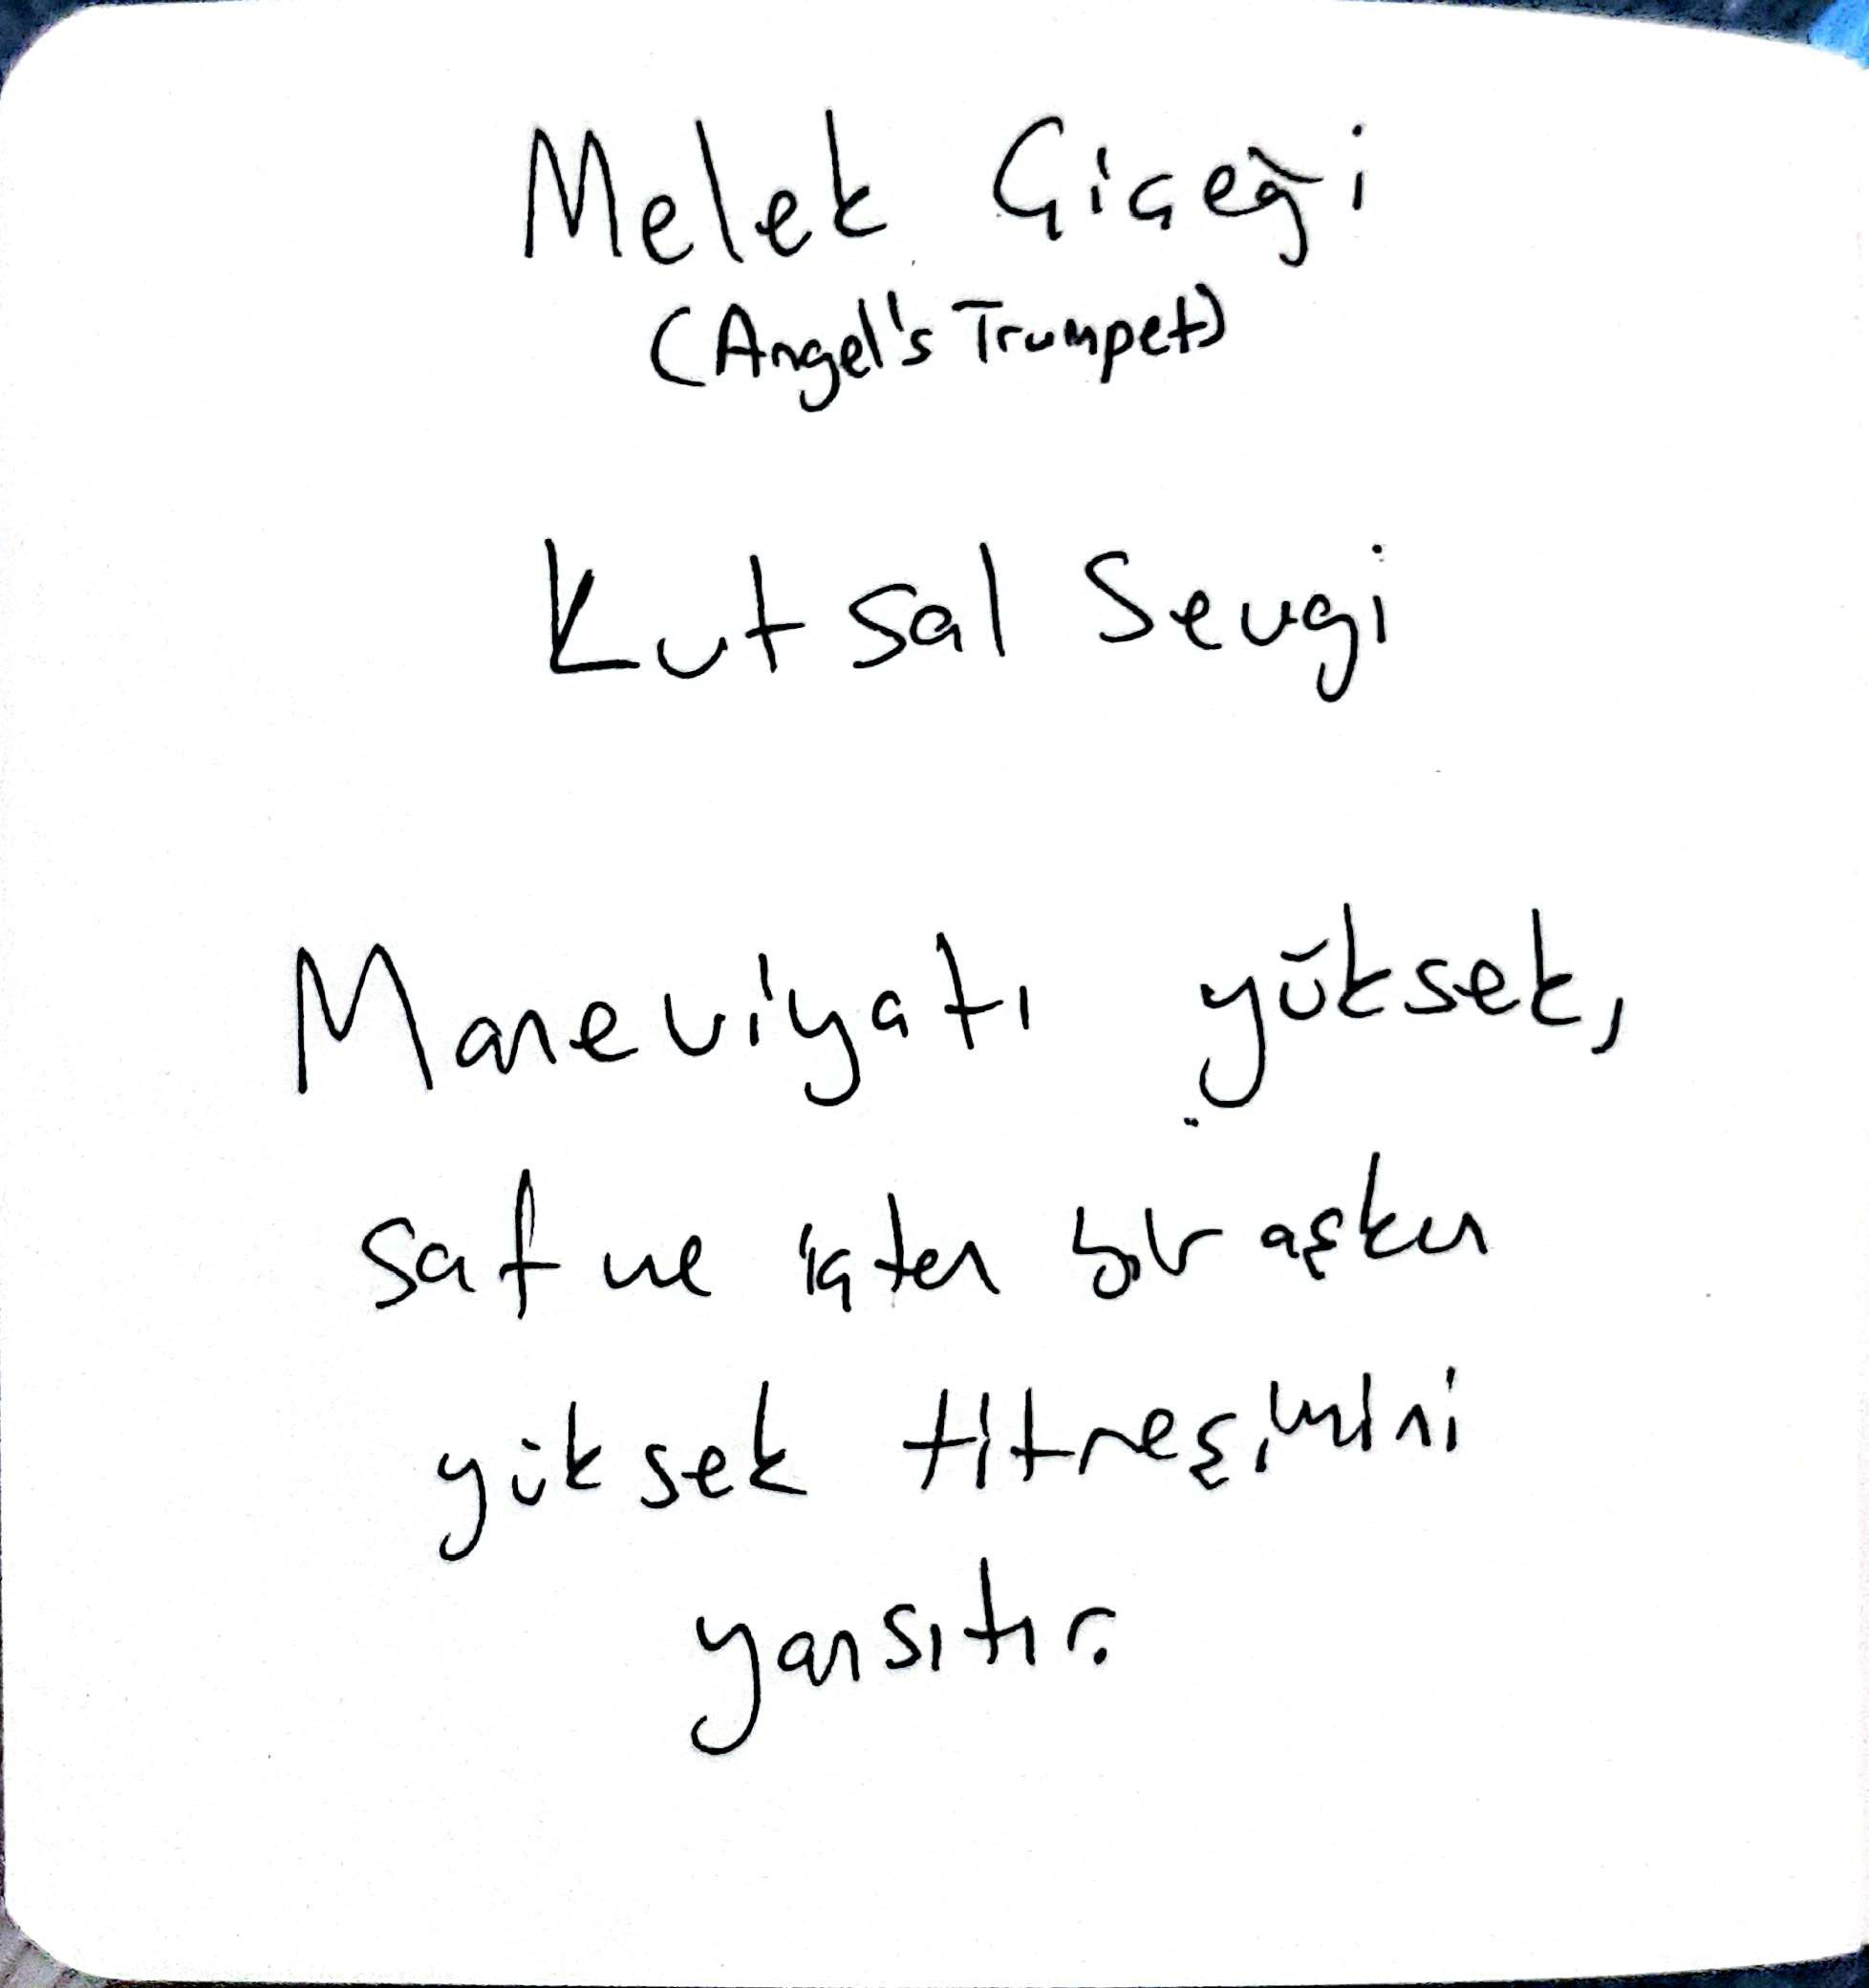 Melek Çiçeği
(Angel's Trumpet)
Kutsal Sevgi
Maneviyatı yüksek,
saf ve içten bir aşkın
yüksek titreşimini
yansıtır.